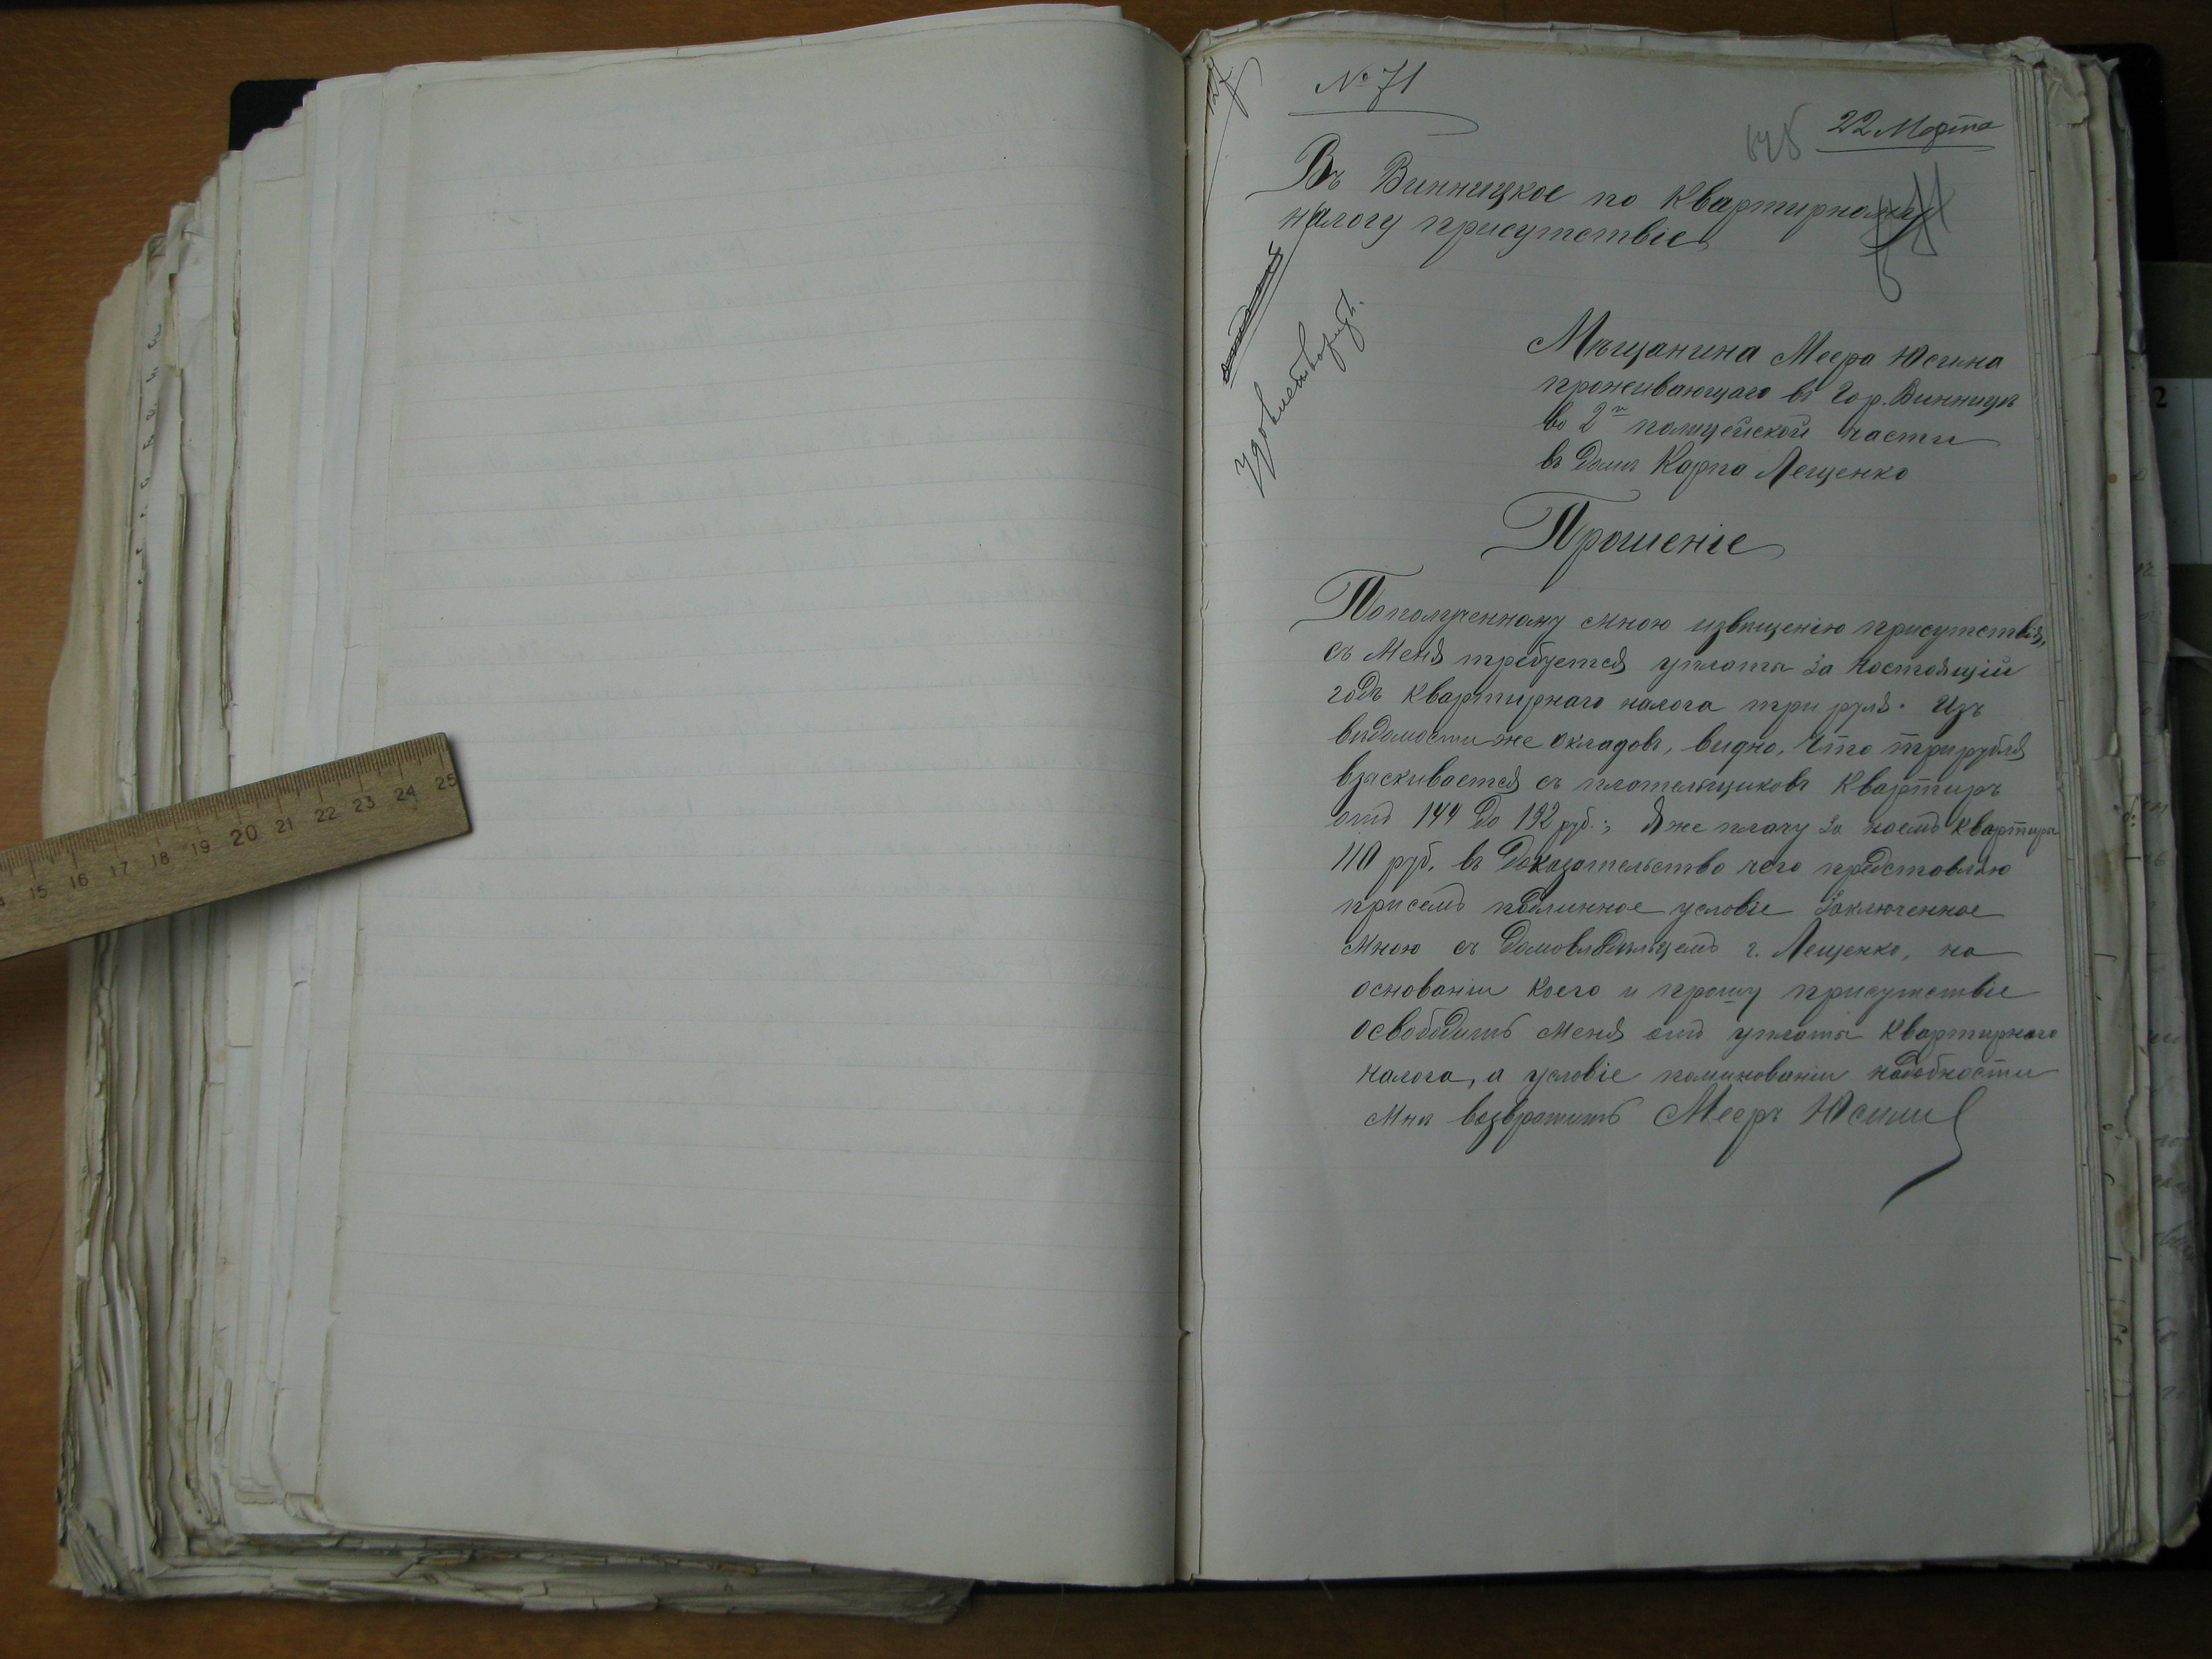 № 71
22 Марта
Въ Винницкое по Квартирному
налогу присутствіе
удовлетворить.
Мѣщанина Меера Юсима
проживающаго въ Гор. Винницѣ
во 2й полицейской части
въ домѣ Карпа Лещенко
Прошеніе
Пополученному мною извѣщенію присутствія,
съ Меня требуется уплаты за настоящій
годъ Квартирнаго налога три рубля. Изъ
вѣдомости же окладовъ, видно, что три рубля
взыскивается съ плательщиковъ Квартиръ
отъ 144 до 192 руб.; Я же плачу за наемъ квартиры
110 руб. въ Доказательство чего представляю
присемъ подлинное условіе заключенное
мною съ Домовладѣльцемъ г. Лещенко, на
основаніи коего и прошу присутствіе
освободить меня отъ уплаты Квартирнаго
налога, а условіе поминованіи надобности
мнѣ возвратить Мееръ Юсимъ
15 16 17 18 19 20 21 22 23 24 25
2